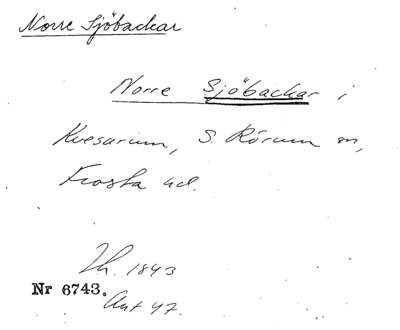 Norre Sjöbackar
Norre Sjöbackar i
Kvesarum, S. Rörum sn,
Frosta hd.
Th. 1843
Nr 6743.
Ant 47.